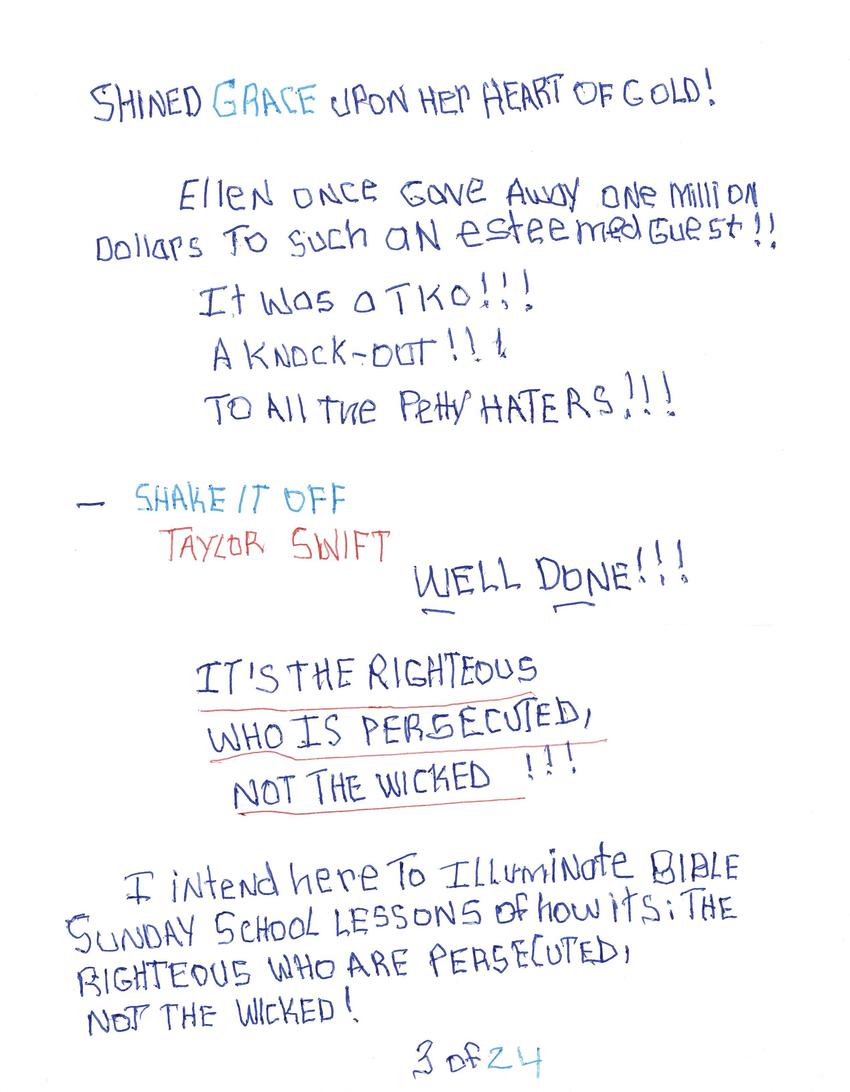 SHINED GRACE UPON HER HEART OF GOLD!
Ellen once Gave Away one Million
Dollars To such an esteemed Guest!!
It was a TKO!!!
A KNOCK-OUT!!!
TO All the Petty HATERS!!!
— SHAKE IT OFF
TAYLOR SWIFT
WELL DONE!!!
IT'S THE RIGHTEOUS
WHO IS PERSECUTED,
NOT THE WICKED !!!
I intend here To Illuminate BIBLE
SUNDAY SCHOOL LESSONS of how its: THE
RIGHTEOUS WHO ARE PERSECUTED,
NOT THE WICKED!
3 of 24